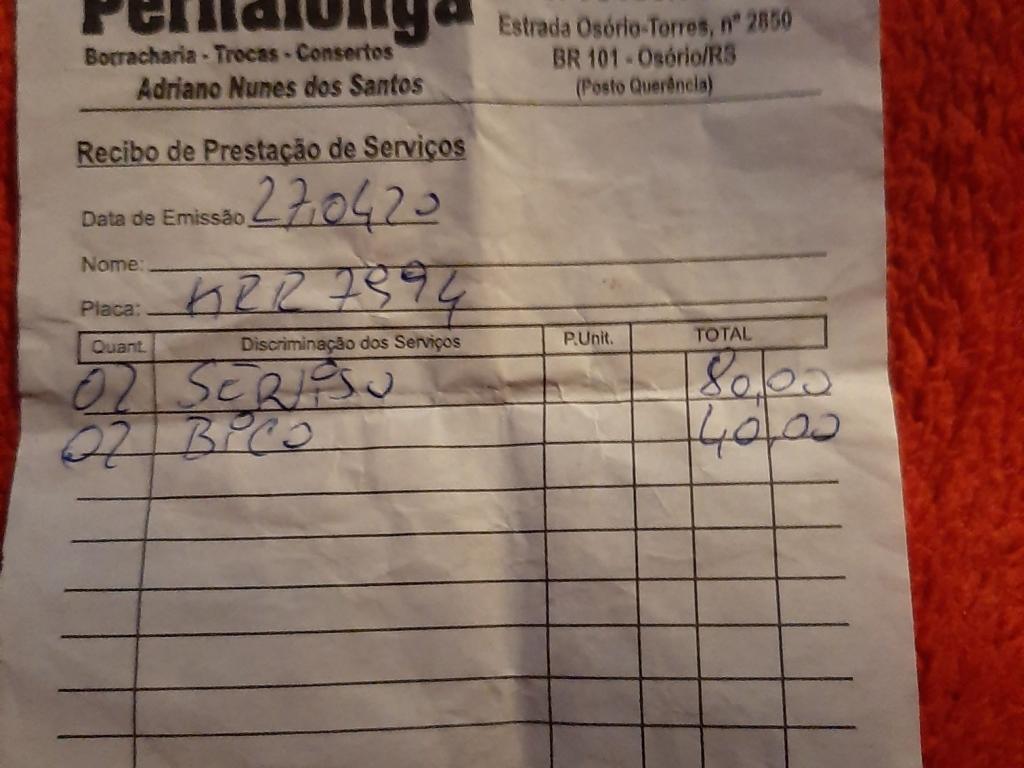 Pernalonga
Borracharia - Trocas - Consertos
Adriano Nunes dos Santos
Estrada Osório-Torres, nº 2850
BR 101 - Osório/RS
(Posto Querência)
Recibo de Prestação de Serviços
Data de Emissão 27.04.20
Nome:
Placa: KRR 7994
Quant. Discriminação dos Serviços P.Unit. TOTAL
02 SERViSO 80,00
02 BiCO 40,00